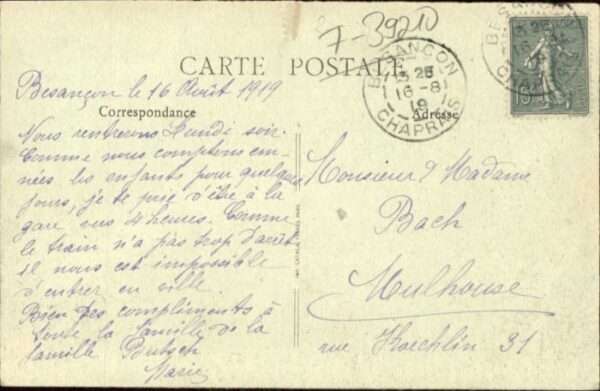 7-39210
CARTE POSTALE
Besançon le 16 Août 1919
Correspondance
Adresse
BESANÇON
13 25
16-8
19
CHAPRAIS
Nous rentrerons Lundi soir.
Comme nous comptons em-
nées les enfants pour quelques
jours, je te prie d'être à la
gare vers 4 heures. Comme
le train n'a pas trop d'arrêt
il nous est impossible
d'entrer en ville.
Bien des compliments à
toute la famille de la
famille Butsch
Marie
Monsieur & Madame
Bach
Mulhouse
rue Koechlin 31